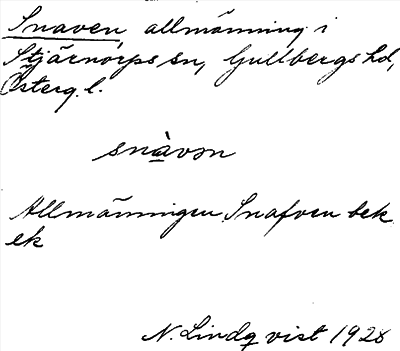 Snaven allmänning i
Stjärnorps sn, Gullbergs hd,
Österg. l.
snàvən
Allmänningen Snafven bek.
ek
N. Lindqvist 1928